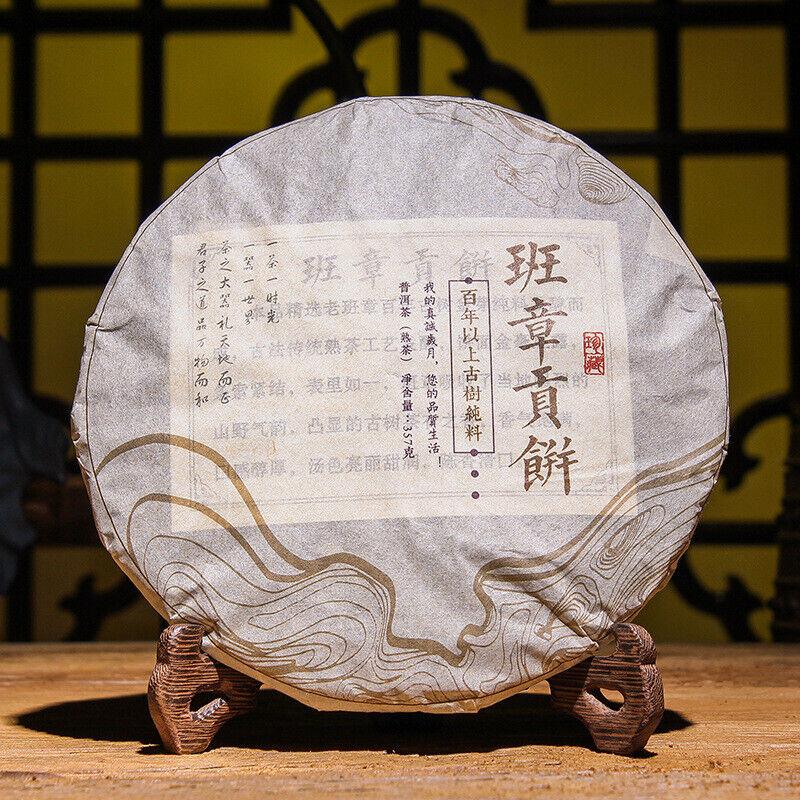 班章貢餅
珍藏
百年以上古樹純料
我的真誠歲月，您的品質生活！
普洱茶（熟茶）淨含量：357克
一茶一时光
一器一世界
茶之大器礼天地而正
君子之道品万物而和
班章貢餅
精选老班章百
古法传统熟茶工艺
索紧结，表里如一，
山野气韵，凸显的古树茶
汤色亮丽甜润，